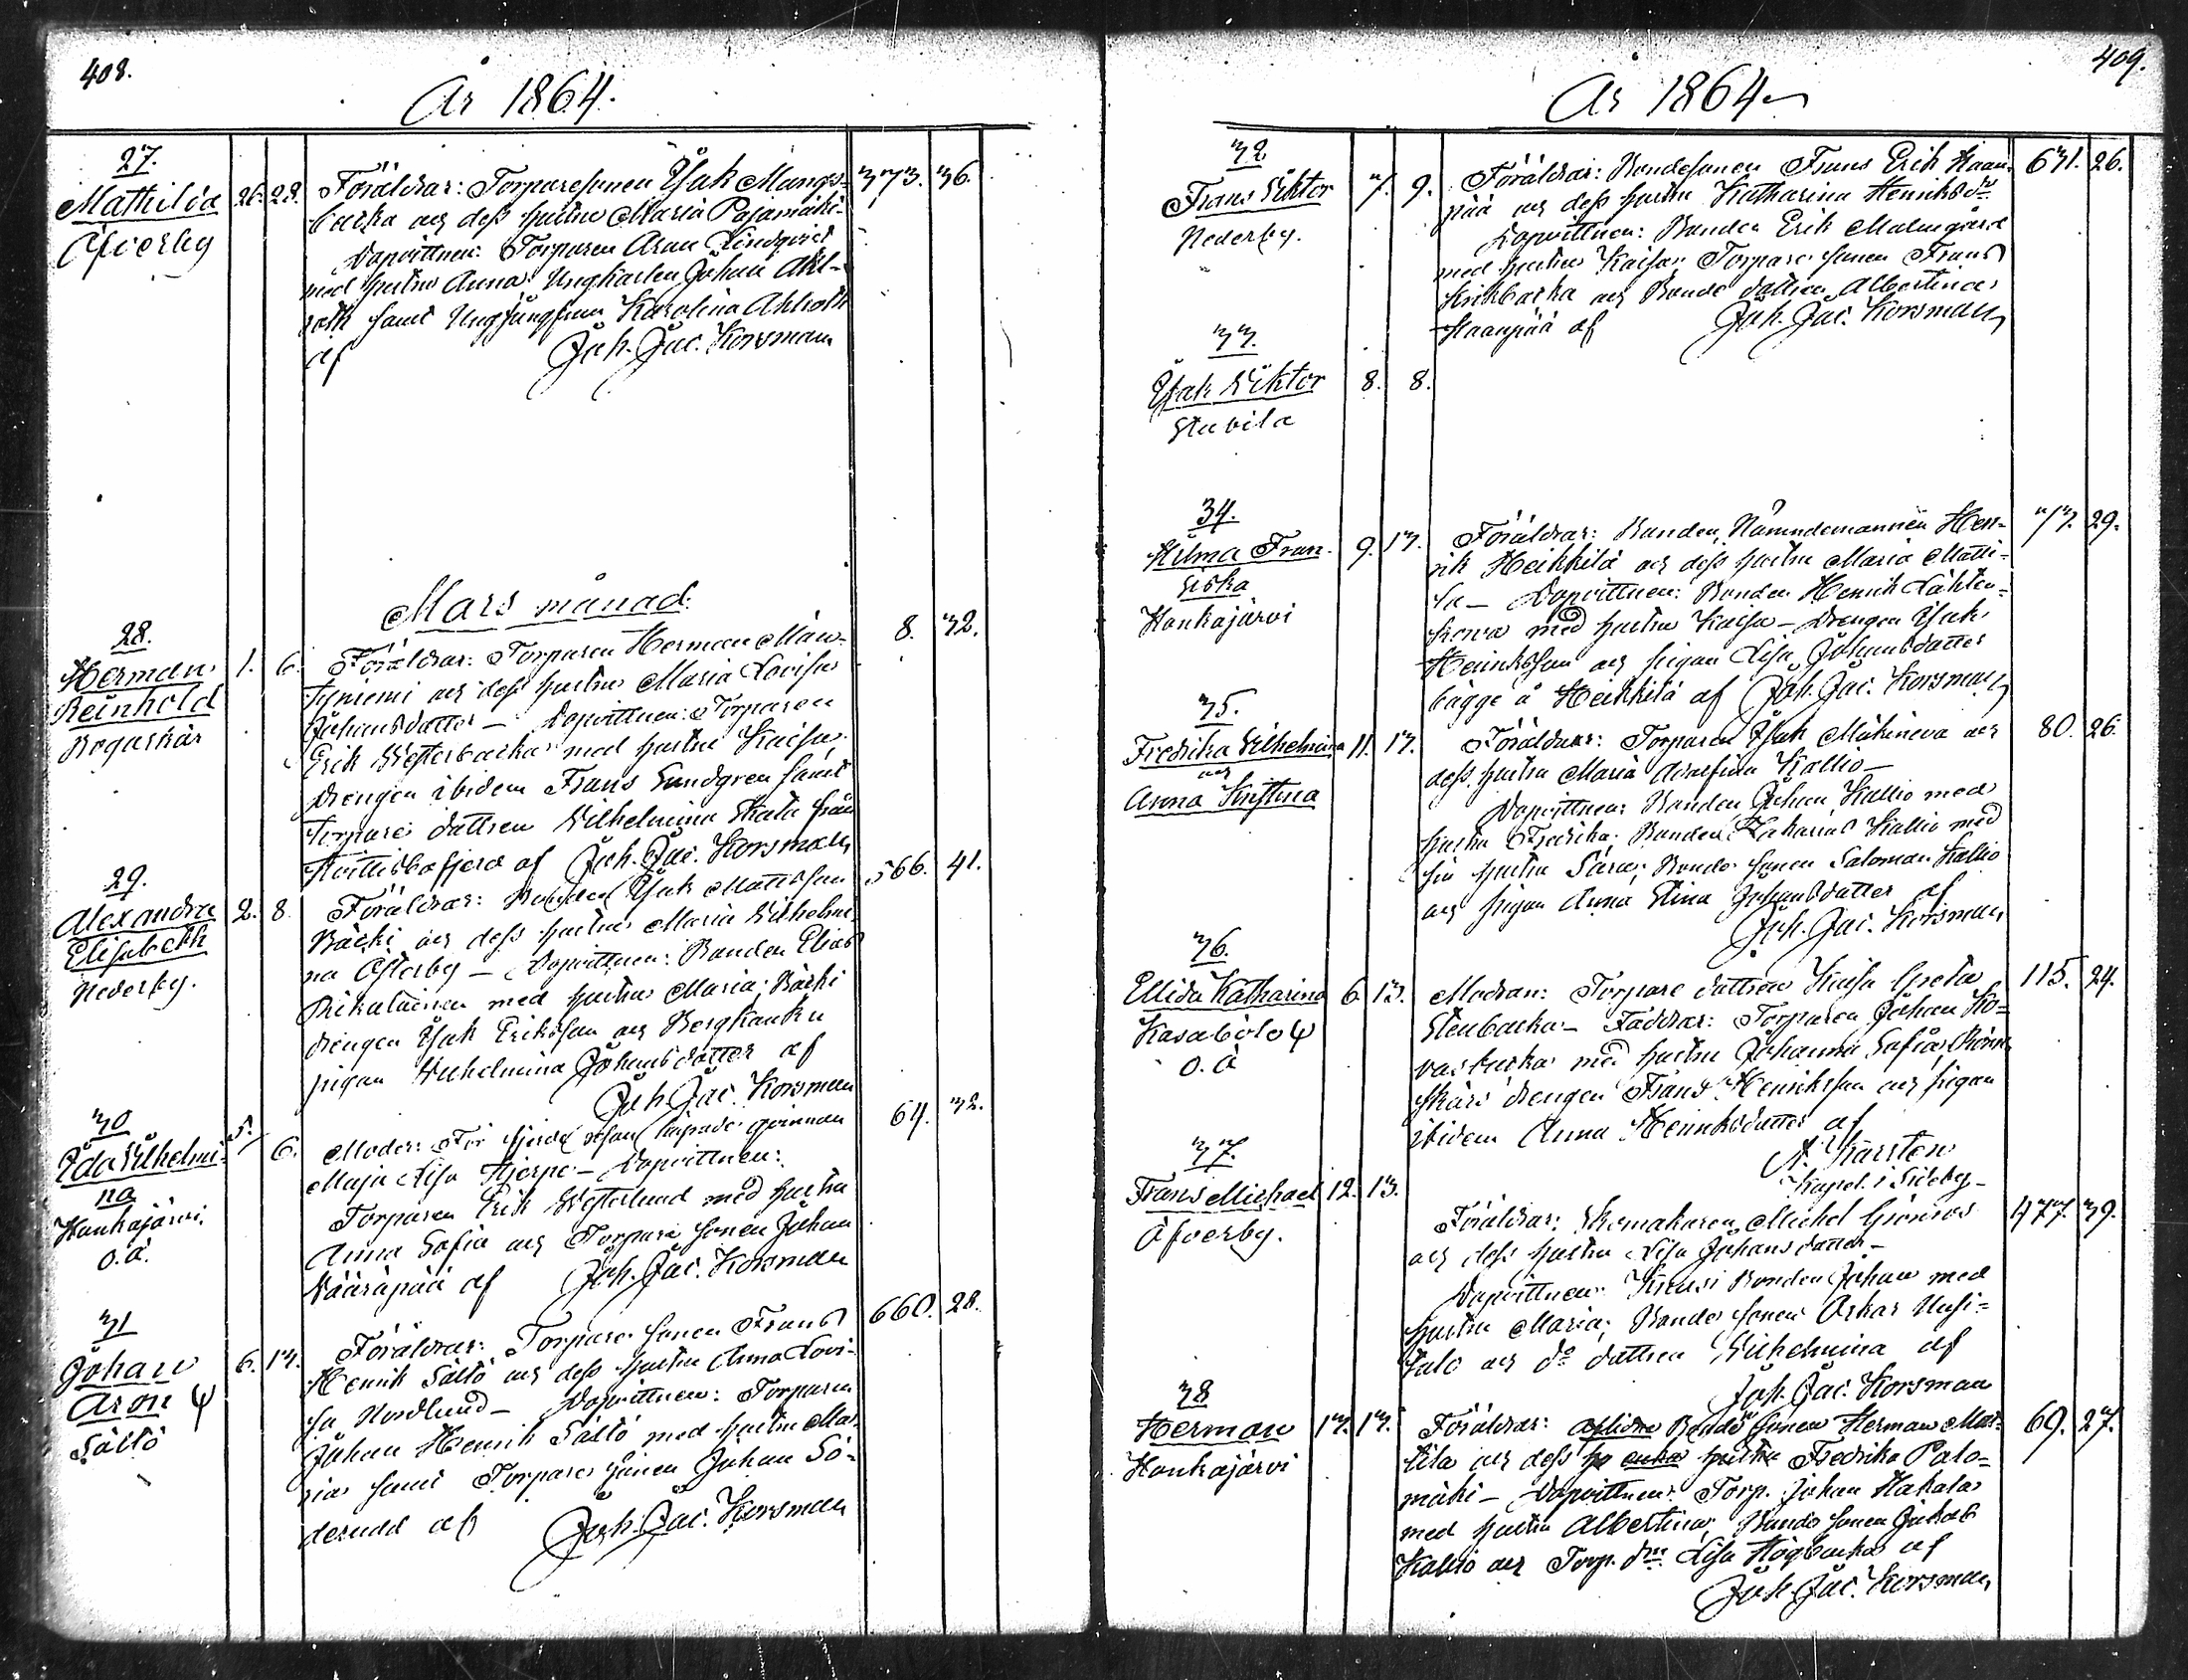 408.
År 1864.
27.
Mathilda
Åfverby
26. 28.
Föräldrar: Torparesonen Isak Mangs-
backa och dess hustru Maria Pajamäki-
Dopvittnen: Torparen Aron Lindqvist
med hustru Anna; Ungkarlen Johan Ahl-
roth samt Ungjungfrun Karolina Ahlroth
af Joh. Jac. Korsman
373. 36.
Mars månad.
28.
Herman
Reinhold
Bogaskär
1. 6.
Föräldrar: Torparen Herman
och dess hustru Maria Lovisa
Johansdotter - Dopvittnen: Torparen
Erik Westerbacka med hustru Kaisa;
drengen ibidem Frans Sundgren samt
Torpare dottren Wilhelmina Skata från
af Joh. Jac. Korsman
8. 32.
29.
Alexandra
Elisabeth
Nederby.
2. 8.
Föräldrar: Bonden Isak Mattsson
Bäcki och dess hustru Maria Wilhelmi-
na Österby - Dopvittnen: Bonden Elias
med hustru Maria; Bäcki
drengen Isak Eriksson och Bergkanka
pigan Wilhelmina Johansdotter af
Joh. Jac. Korsman
566. 41.
30
Ida Wilhelmi-
na
Honkajärvi.
o.ä.
5. 6.
Moder: För fjerde resan lägrade qvinnan
Maja Lisa Hjerpe - Dopvittnen:
Torparen Erik Westerlund med hustru
Anna Sofia och Torpare sonen Johan
Wääräpää af Joh. Jac. Korsman
64. 32.
31
Johan
Aron
Sältö
6. 13.
Föräldrar: Torpare sonen Frans
Henrik Sältö och dess hustru Anna Lovi-
sa Nordlund - Dopvittnen: Torparen
Johan Henrik Sältö med hustru Ma-
ria samt Torpare sonen Johan Sö-
derudd af Joh. Jac. Korsman
660. 28.
409.
År 1864
32
Frans Viktor
Nederby.
7. 9.
Föräldrar: Bondesonen Frans Erik Haan-
pää och dess hustru Katharina Henriksdr
Dopvittnen: Bonden Erik Malmgård
med hustru Kaisa; Torpare sonen Frans
och Bonde dottren Albertina
Haanpää af Joh. Jac. Korsman
631. 26.
33.
Isak Viktor
8. 8.
34.
Hilma Fran-
siska
Honkajärvi
9. 13.
Föräldrar: Bonden, Nämndemannen Hen-
rik Heikkilä och dess hustru Maria Matti-
la - Dopvittnen: Bonden Henrik Lähten-
korva med hustru Kaisa - Drengen Isak
Henriksson och pigan Lisa Johansdotter
bägge å Heikkilä af Joh. Jac. Korsman
73. 29.
35.
Fredrika Wilhelmina
och
Anna Kristina
11. 13.
Föräldrar: Torparen Isak Mäkineva och
dess hustru Maria Kallio -
Dopvittnen: Bonden Johan Kallio med
hustru Fredrika; Bonden Zakarias Kallio med
sin hustru Sara; Bonde sonen Saloman Kallio
och pigan Anna Stina Johansdotter af
Joh. Jac. Korsman
80. 26.
36.
Ellida Katharina
Kasaböle
o.ä
6. 13.
Modren: Torpare dottren Kaisa Greta
Stenbacka - Faddrar: Torparen Johan Ko-
vasbacka med hustru Johanna Sofia;
drengen Frans Henriksson och pigan
ibidem Anna Henriksdotter af
N. Karsten
Kapel. i Sideby -
115. 24.
37.
Frans Michael
Åfverby.
12. 13.
Föräldrar: Skomakaren Michel Grönroos
och dess hustru Lisa Johansdotter -
Dopvittnen: Bonden Johan med
hustru Maria; Bonde sonen Oskar Uusi-
talo och do dottren Wilhelmina af
Joh. Jac. Korsman
477. 39.
38
Herman
Honkajärvi
13. 13.
Föräldrar: aflidne Bonde sonen Herman Mat-
tila och dess enka hustru Fredrika Palo-
mäki - Dopvittnen: Torp. Johan Hakala
med hustru Albertina; Bonde sonen Jakob
Kallio och Torp. dr Lisa Högbacka af
Joh. Jac. Korsman
69. 27.